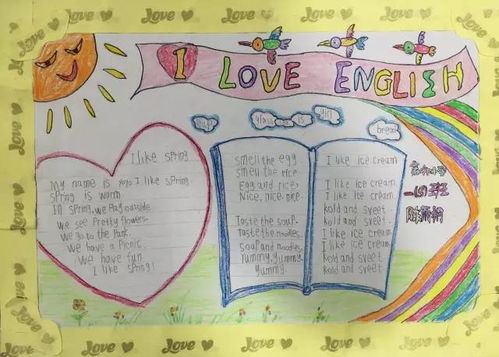 I LOVE ENGLISH
I like spring
My name is yoyo I like spring.
Spring is warm
In spring, we play outside.
We see pretty flowers.
We go to the park.
We have a picnic.
We have fun.
I like spring!
is
bread
smell the egg
smell the rice
Egg and rice,
Nice, nice, nice.
Taste the soup.
Taste the noodles.
Soup and noodles.
Yummy, yummy,
yummy
I like ice cream
I like ice cream.
I like ice cream.
Kold and sveet
Kold and sveet
I like ice cream
I like ice cream.
Kold and sveet
Kold and sveet
一(4)班
Love
Love
Love
Love
Love
Love
Love
Love
Love
Love
Love